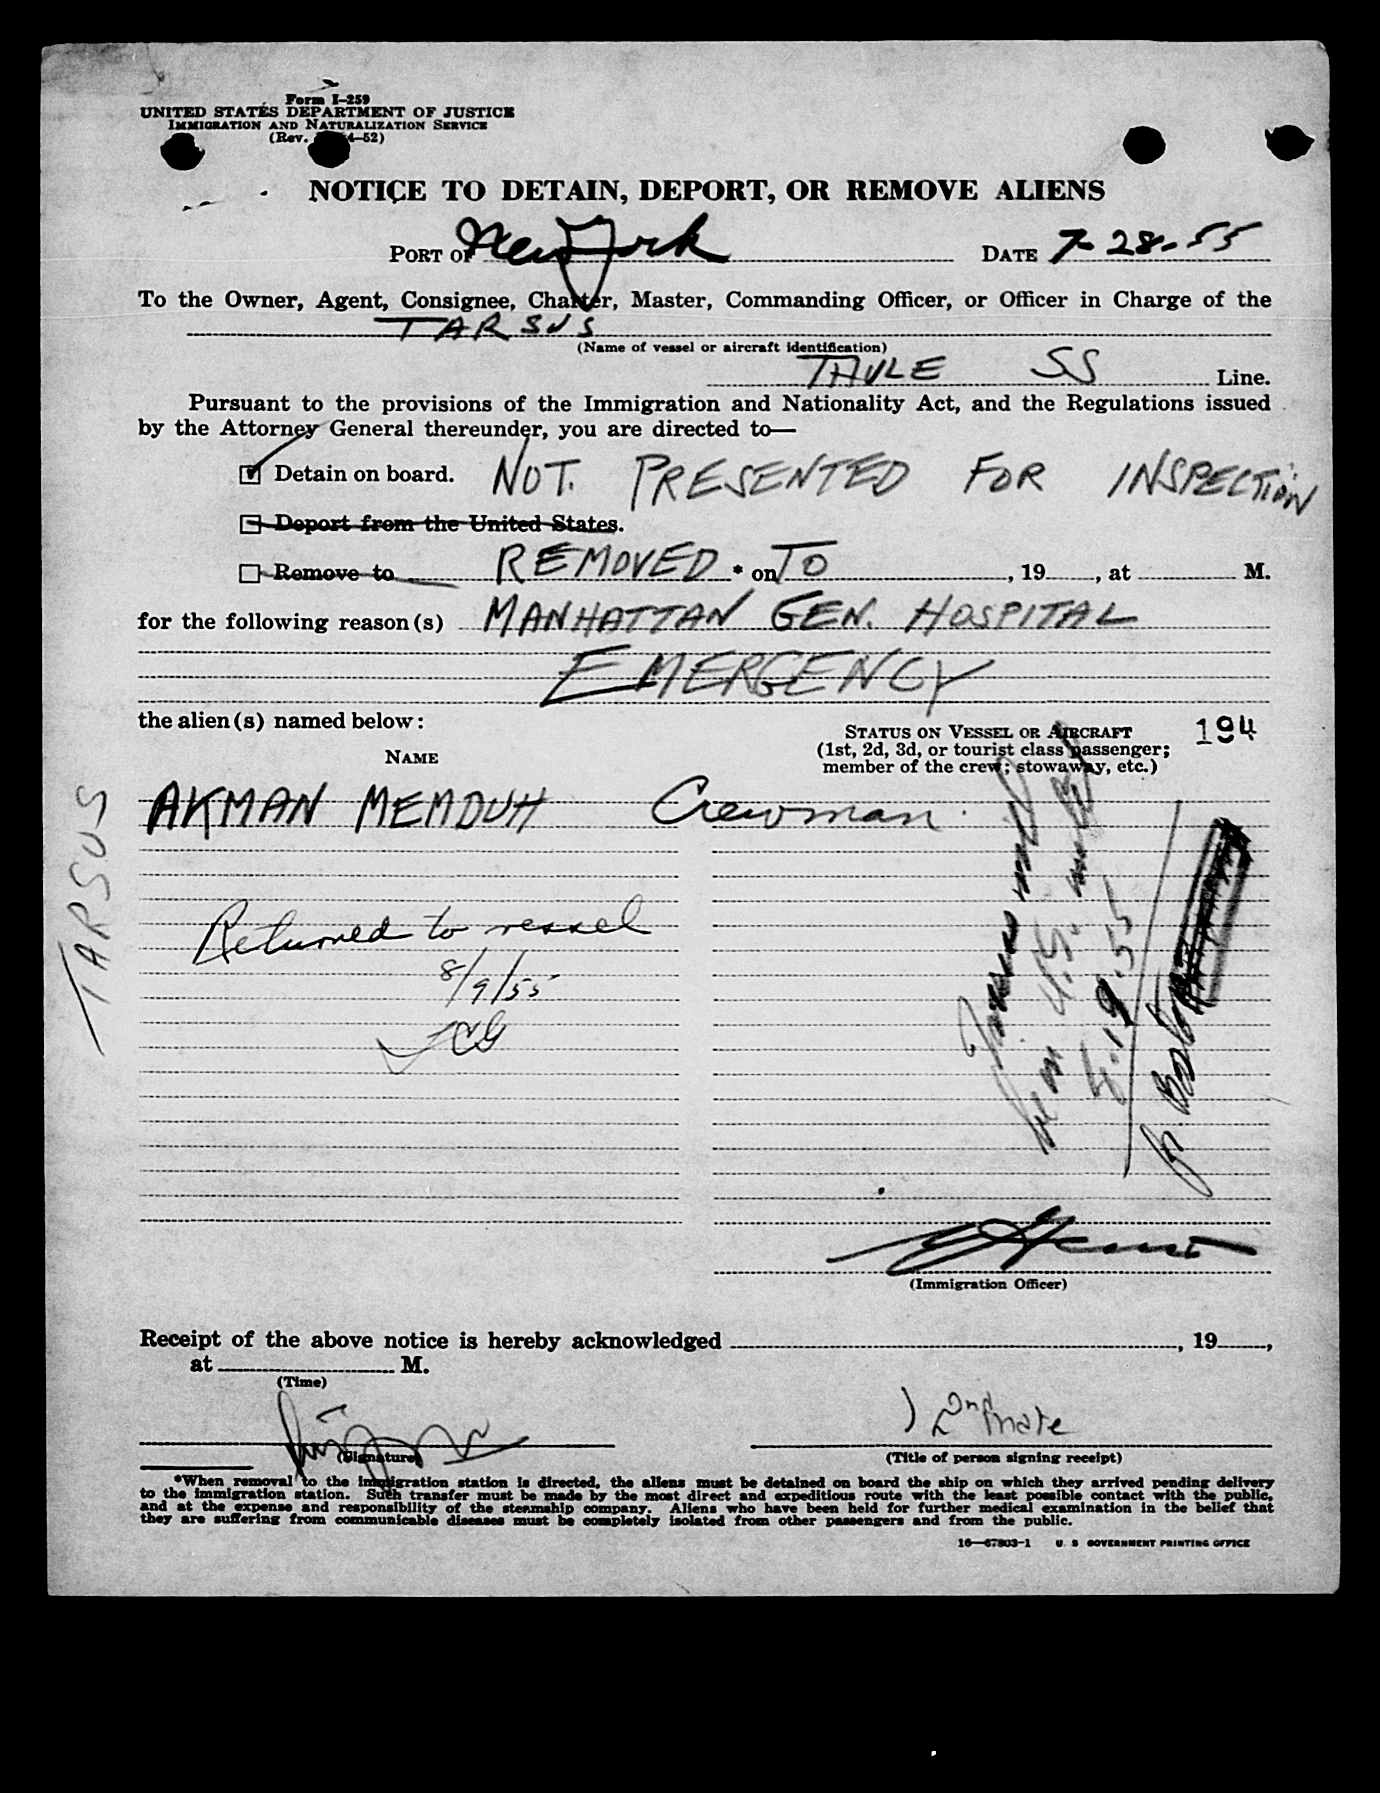 Form I-259
UNITED STATES DEPARTMENT OF JUSTICE
IMMIGRATION AND NATURALIZATION SERVICE
(Rev. 4-52)
NOTICE TO DETAIN, DEPORT, OR REMOVE ALIENS
PORT OF New York DATE 7-28-55
To the Owner, Agent, Consignee, Charter, Master, Commanding Officer, or Officer in Charge of the
TARSUS
(Name of vessel or aircraft identification)
THULE SS Line.
Pursuant to the provisions of the Immigration and Nationality Act, and the Regulations issued
by the Attorney General thereunder, you are directed to—
Detain on board. NOT. PRESENTED FOR INSPECTION
Deport from the United States.
Remove to REMOVED * on TO , 19 , at M.
for the following reason(s) MANHATTAN GEN. HOSPITAL
EMERGENCY
the alien(s) named below:
STATUS ON VESSEL OR AIRCRAFT
(1st, 2d, 3d, or tourist class passenger;
member of the crew; stowaway, etc.)
194
NAME
AKMAN MEMDUH Crewman
TARSUS
Returned to vessel
8/9/55
JCG
U.S.
(Immigration Officer)
Receipt of the above notice is hereby acknowledged , 19 ,
at M.
(Time)
2nd mate
(Signature)
(Title of person signing receipt)
*When removal to the immigration station is directed, the aliens must be detained on board the ship on which they arrived pending delivery
to the immigration station. Such transfer must be made by the most direct and expeditious route with the least possible contact with the public,
and at the expense and responsibility of the steamship company. Aliens who have been held for further medical examination in the belief that
they are suffering from communicable diseases must be completely isolated from other passengers and from the public.
16—67803-1 U. S GOVERNMENT PRINTING OFFICE